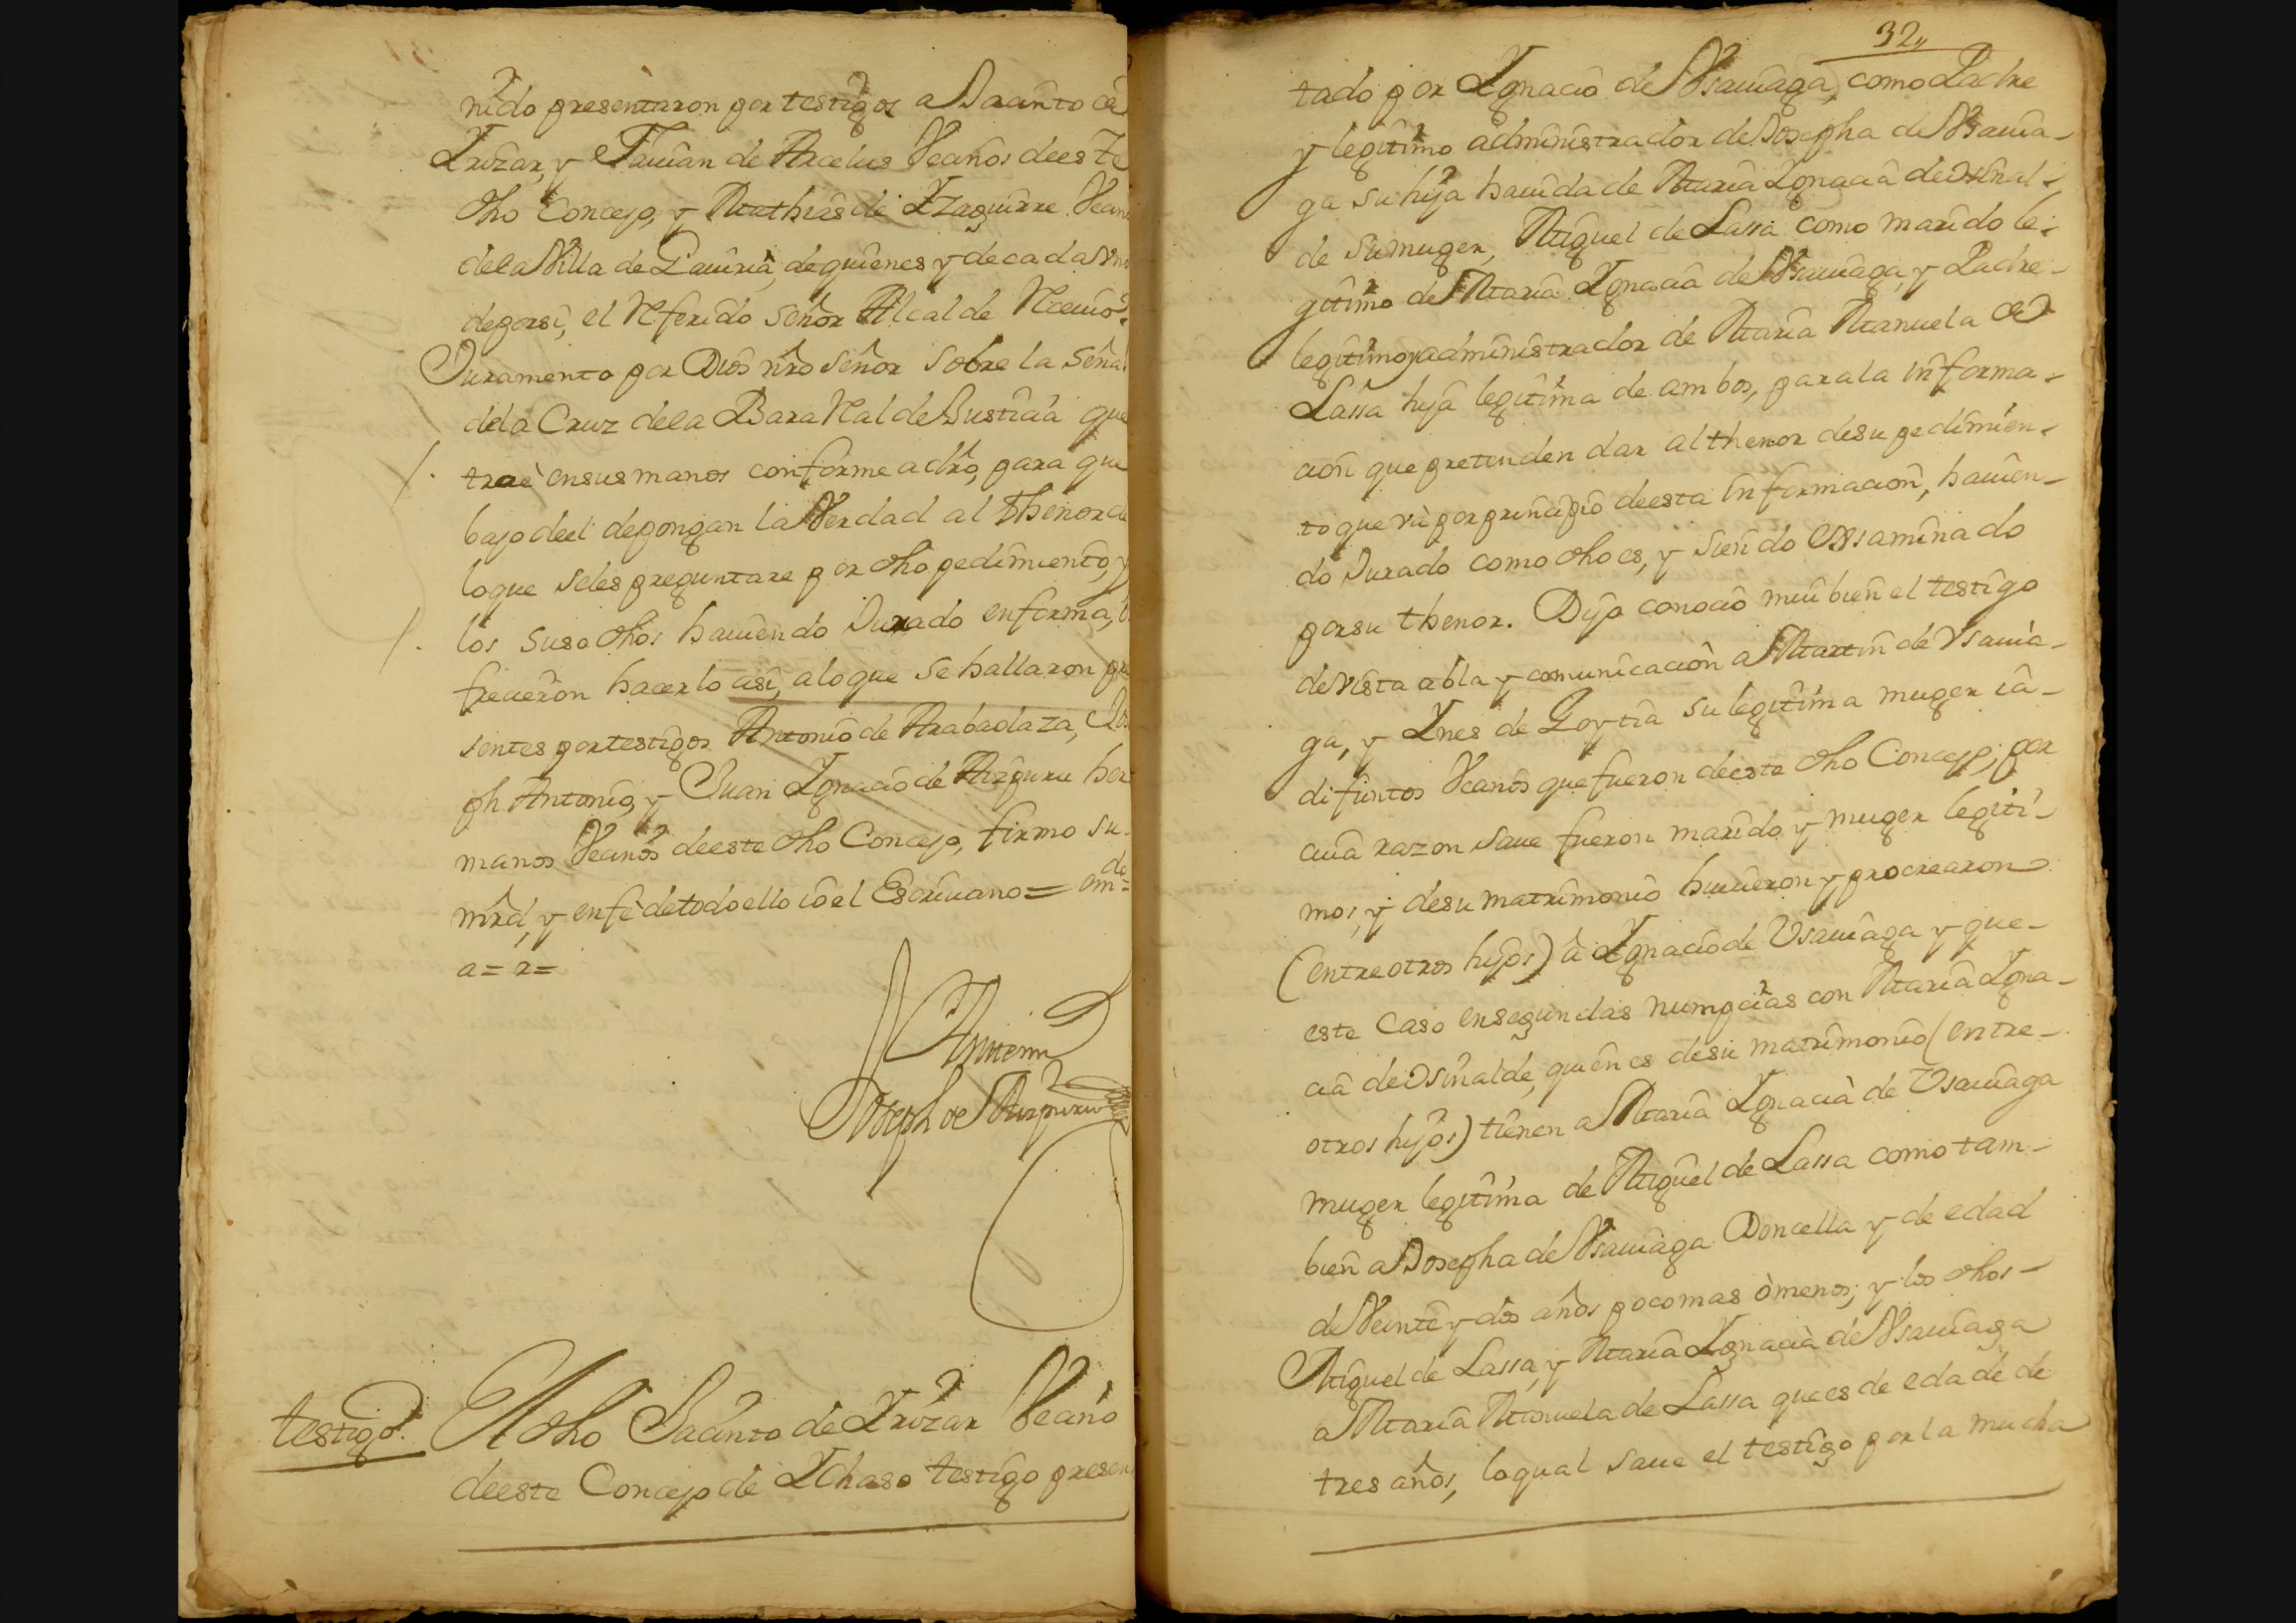 nido presentaron por testigos a Jacinto de
Yrizar, y Favian de Arcelus Vecinos de este
dho Concejo, y Mathias de Yzaguirre Vecino
de la Villa de Gaviria, de quienes y de cada Uno
de por si, el Referido señor Alcalde Recivio
Juramento por Dios nro señor sobre la señal
de la Cruz de la Bara Real de Justicia que
trae en sus manos conforme a dro, para que
bajo de el depongan la Verdad al thenor de
lo que seles preguntare por dho pedimiento, y
los suso dhos haviendo Jurado en forma,
frecieron hacerlo asi, a lo que se hallaron pre
sentes por testigos Antonio de Arabaolaza, Jos
ph Antonio, y Juan Ygnacio de Aizpuru her
manos Vecinos de este dho Concejo, firmo su
mrd, y en fe de todo ello io el Escrivano = em.do=
a = r =
Antemi
Joseph de Aizpuru
testigo. El dho Jacinto de Yrizar Vecino
de este Concejo de Ychaso testigo presen
32,,
tado por Ygnacio de Vsauiaga, como Padre
y legitimo administrador de Josepha de Vsauia-
ga su hija hauida de Maria Ygnacia de Osinal-
de su muger, Miguel de Lassa como marido le-
gitimo de Maria Ygnacia de Vsauiaga, y Padre-
legitimo y administrador de Maria Manuela de
Lassa hija legitima de ambos, para la informa-
cion que pretenden dar al thenor de su pedimien-
to que va por principio de esta informacion, hauien-
do Jurado como dho es, y siendo Essaminado
por su thenor. Dijo conocio mui bien el testigo
de vista abla y comunicacion a Martin de Vsauia-
ga, y Ynes de Goytia su legitima muger ia-
difuntos Vecinos que fueron de este dho Concejo, por
cuia razon saue fueron marido y muger legiti-
mos, y de su matrimonio huuieron y procrearon
(entre otros hijos) â Ygnacio de Vsauiaga y que-
este Caso en segundas numpcias con Maria Ygna-
cia de Osinalde, quienes de su matrimonio (entre-
otros hijos) tienen a Maria Ygnacia de Vsauiaga
muger legitima de Miguel de Lassa como tam-
bien a Josepha de Vsauiaga Doncella y de edad
de Veinte y dos años poco mas ò menos; y los dhos-
Miguel de Lassa, y Maria Ygnacia de Vsauiaga
a Maria Manuela de Lassa que es de edad de de
tres años, lo qual saue el testigo por la mucha